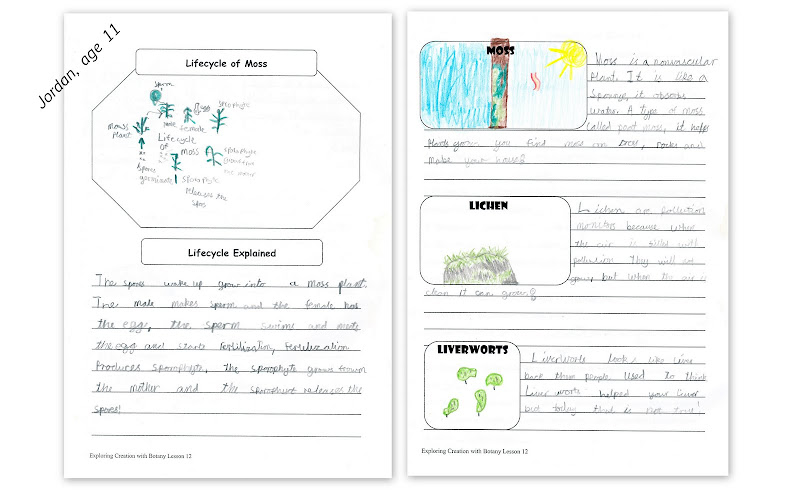 Jordan, age 11
Lifecycle of Moss
Sperm
male
egg
female
sporophyte
moss
plant
Lifecycle
OF
moss
sporophyte
grows from
the mother
spores
germinate
sporophyte
releases the
spos
Lifecycle Explained
The spores wake up grow into a moss plant.
The male makes sperm and the female has
the egg, the sperm swims and meets
the egg and starts fertilization, Fertilization
Produces sporophyte, the sporophyte grows from
the mother and the sporophyte releases the
spores!
Exploring Creation with Botany Lesson 12
MOSS
Moss is a nonvascular
Plant. It is like a
sponge, it absorbs
water. A type of moss
called peat moss, it helps
Plants grown you find moss on trees, rocks and
make your house?
LICHEN
Lichen are pollution
monitors because when
the air is filled with
pollution they will not
grow, but when the air is
clean it can grown?
LIVERWORTS
Liverworts look like liver
back then people used to think
Liver worts helped your liver
but today that is not true!
Exploring Creation with Botany Lesson 12